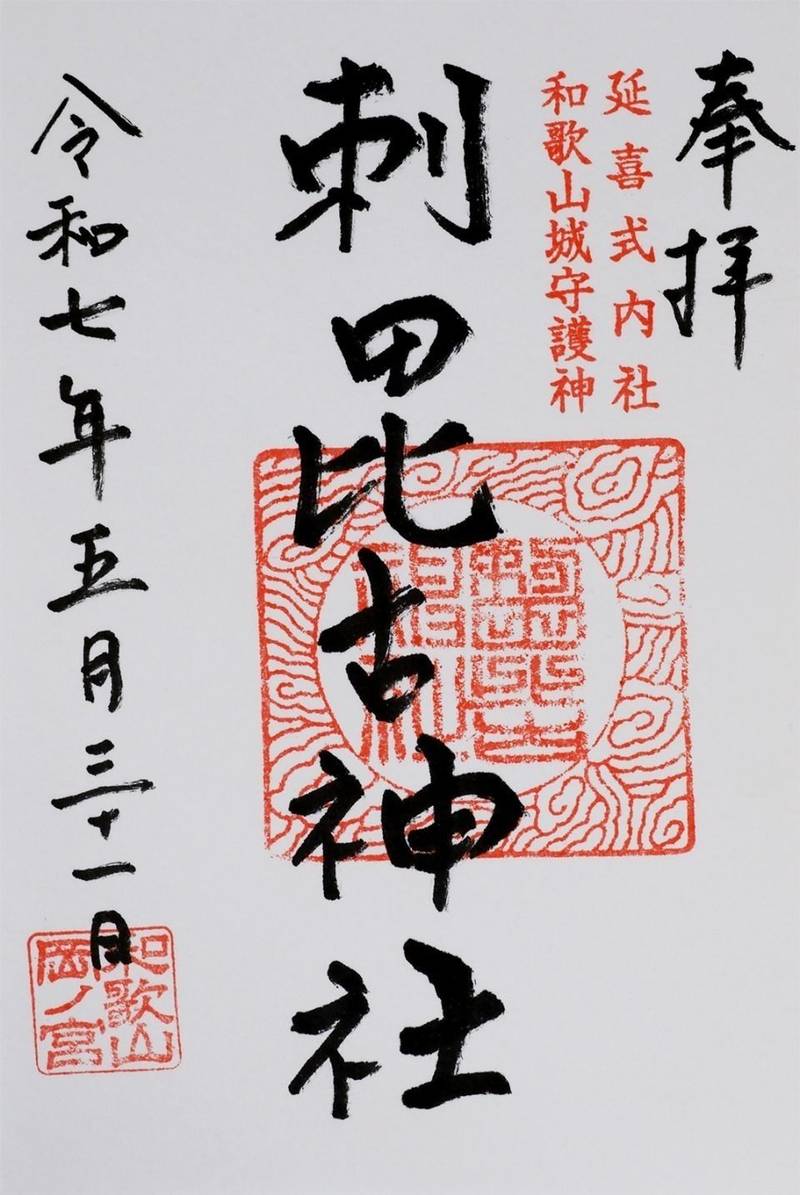 奉拝
延喜式内社
和歌山城守護神
刺田比古神社
令和七年五月三十一日
和歌山
岡ノ宮